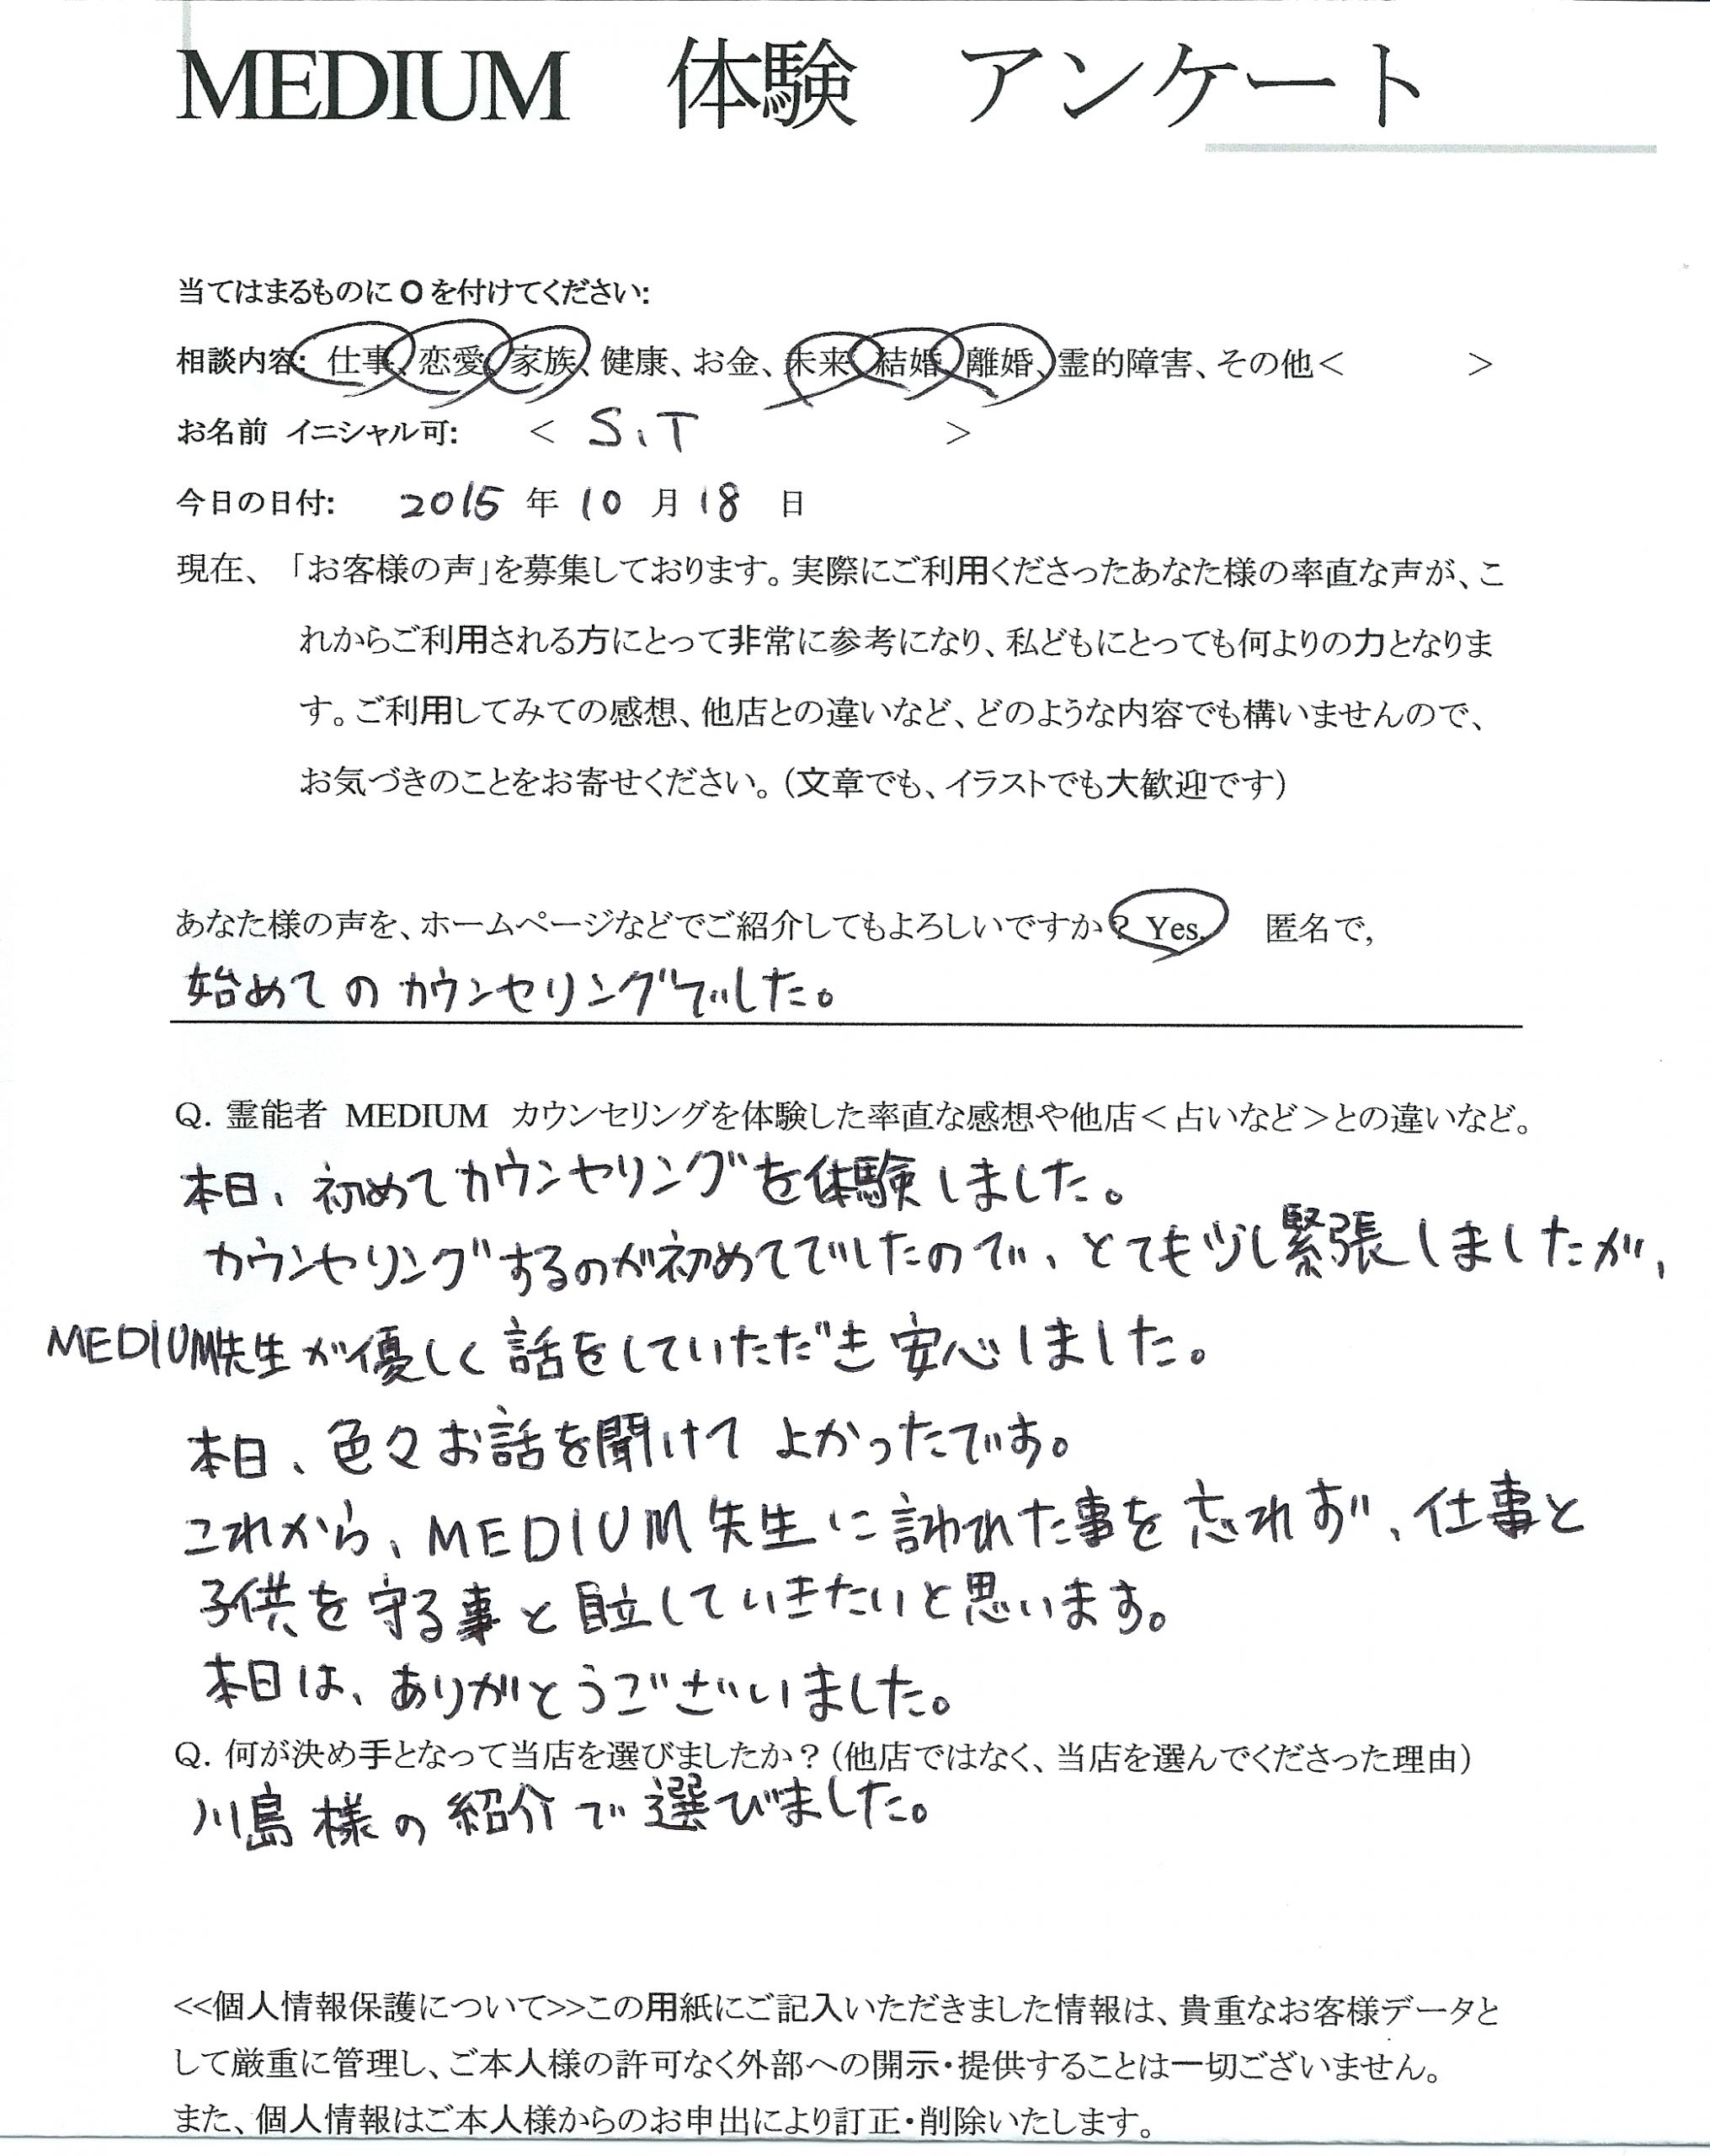 MEDIUM 体験 アンケート
当てはまるものに O を付けてください:
相談内容: 仕事、恋愛、家族、健康、お金、未来、結婚、離婚、霊的障害、その他＜ ＞
お名前 イニシャル可: ＜ S、T ＞
今日の日付: 2015 年 10 月 18 日
現在、「お客様の声」を募集しております。実際にご利用くださったあなた様の率直な声が、こ
れからご利用される方にとって非常に参考になり、私どもにとっても何よりの力となりま
す。ご利用してみての感想、他店との違いなど、どのような内容でも構いませんので、
お気づきのことをお寄せください。（文章でも、イラストでも大歓迎です）
あなた様の声を、ホームページなどでご紹介してもよろしいですか？ Yes. 匿名で,
始めてのカウンセリングでした。
Q. 霊能者 MEDIUM カウンセリングを体験した率直な感想や他店＜占いなど＞との違いなど。
本日、初めてカウンセリングを体験しました。
カウンセリングするのが初めてでしたので、とても少し緊張しましたが、
MEDIUM先生が優しく話をしていただき安心しました。
本日、色々お話を聞けてよかったです。
これから、MEDIUM先生に言われた事を忘れず、仕事と
子供を守る事と自立していきたいと思います。
本日は、ありがとうございました。
Q. 何が決め手となって当店を選びましたか？（他店ではなく、当店を選んでくださった理由）
川島様の紹介で選びました。
<<個人情報保護について>>この用紙にご記入いただきました情報は、貴重なお客様データと
して厳重に管理し、ご本人様の許可なく外部への開示・提供することは一切ございません。
また、個人情報はご本人様からのお申出により訂正・削除いたします。